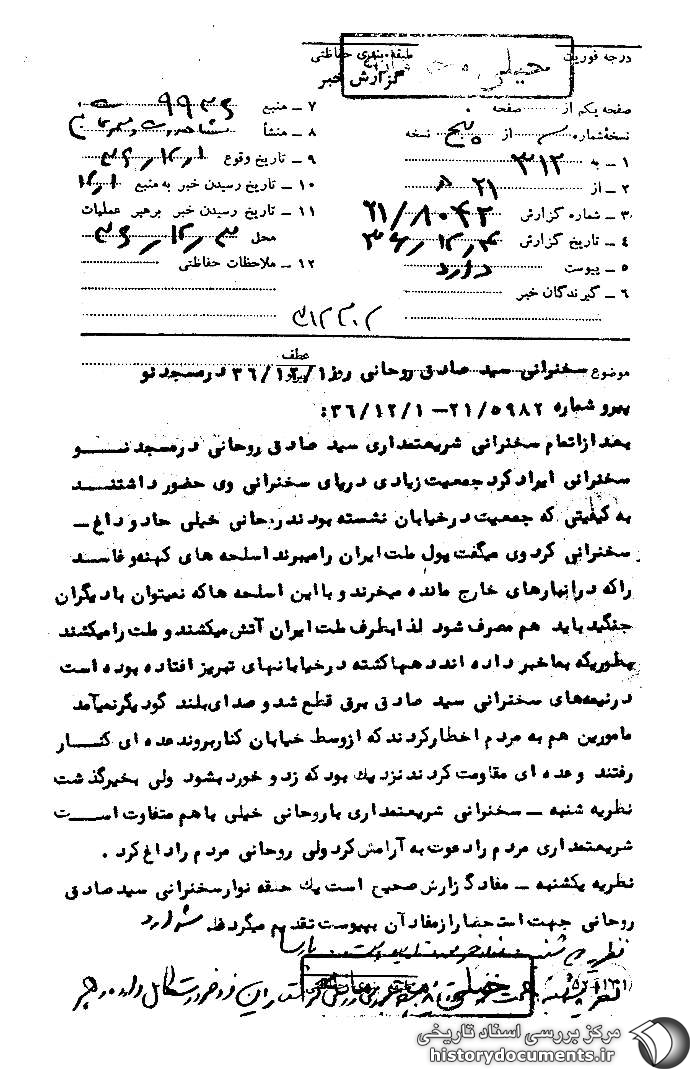 درجه فوریت
طبقه بندی حفاظتی
خیلی
گزارش خبر
صفحه یکم از صفحه
نسخه شماره از پنج نسخه
۱ ــ به ۳۱۲
۲ ــ از ۲۱ ه
۳ ــ شماره گزارش ۲۱/۸۰۴۲
۴ ــ تاریخ گزارش ۳۶/۱۲/۴
۵ ــ پیوست دارد
۶ ــ گیرندگان خبر
۷ ــ منبع ۹۹۳۶
۸ ــ منشأ مشاهدات و
۹ ــ تاریخ وقوع ۳۶/۱۲/۱
۱۰ ــ تاریخ رسیدن خبر به منبع ۱۲/۱
۱۱ ــ تاریخ رسیدن خبر برهبر عملیات
محل ۳۶/۱۲/۳
۱۲ ــ ملاحظات حفاظتی
۳۱۲۳۰۲
موضوع سخنرانی سید صادق روحانی روز ۳۶/۱۲/۱ درمسجد نو
عطف
پیرو
پیرو شماره ۲۱/۵۹۸۲ــ ۳۶/۱۲/۱:
بعد ازاتمام سخنرانی شریعتمداری سید صادق روحانی درمسجد نــو
سخنرانی ایراد کرد جمعیت زیادی درپای سخنرانی وی حضور داشتنــد
به کیفیتی که جمعیت درخیابان نشسته بودند روحانی خیلی حاد و داغ ــ
سخنرانی کرد وی میگفت پول ملت ایران را میبرند اسلحه های کهنه و فاسد
راکه درانبارهای خارج مانده میخرند و با این اسلحه ها که نمیتوان با دیگران
جنگید باید هم مصرف شود لذا بطرف ملت ایران آتش میکشند و ملت را میکشند
بطوریکه بما خبر داده اند دهها کشته درخیابانهای تبریز افتاده بوده است
درنیمه‌های سخنرانی سید صادق برق قطع شد و صدای بلند گو دیگر نمیآمد
مامورین هم به مردم اخطار کردند که ازوسط خیابان کنار بروند عده ای کنــار
رفتند و عده ای مقاومت کردند نزدیك بود که زد و خورد بشود ولی بخیر گذشت
نظریه شنبه ــ سخنرانی شریعتمداری با روحانی خیلی با هم متفاوت اســت
شریعتمداری مردم را دعوت به آرامش کرد ولی روحانی مردم را داغ کرد .
نظریه یکشنبه ــ مفاد گزارش صحیح است یك حلقه نوار سخنرانی سید صادق
روحانی جهت استحضار از مفاد آن بپیوست تقدیم میگردد
نظریه
پارسا
خیلی
نظریه
مرکز بررسی اسناد تاریخی
historydocuments.ir